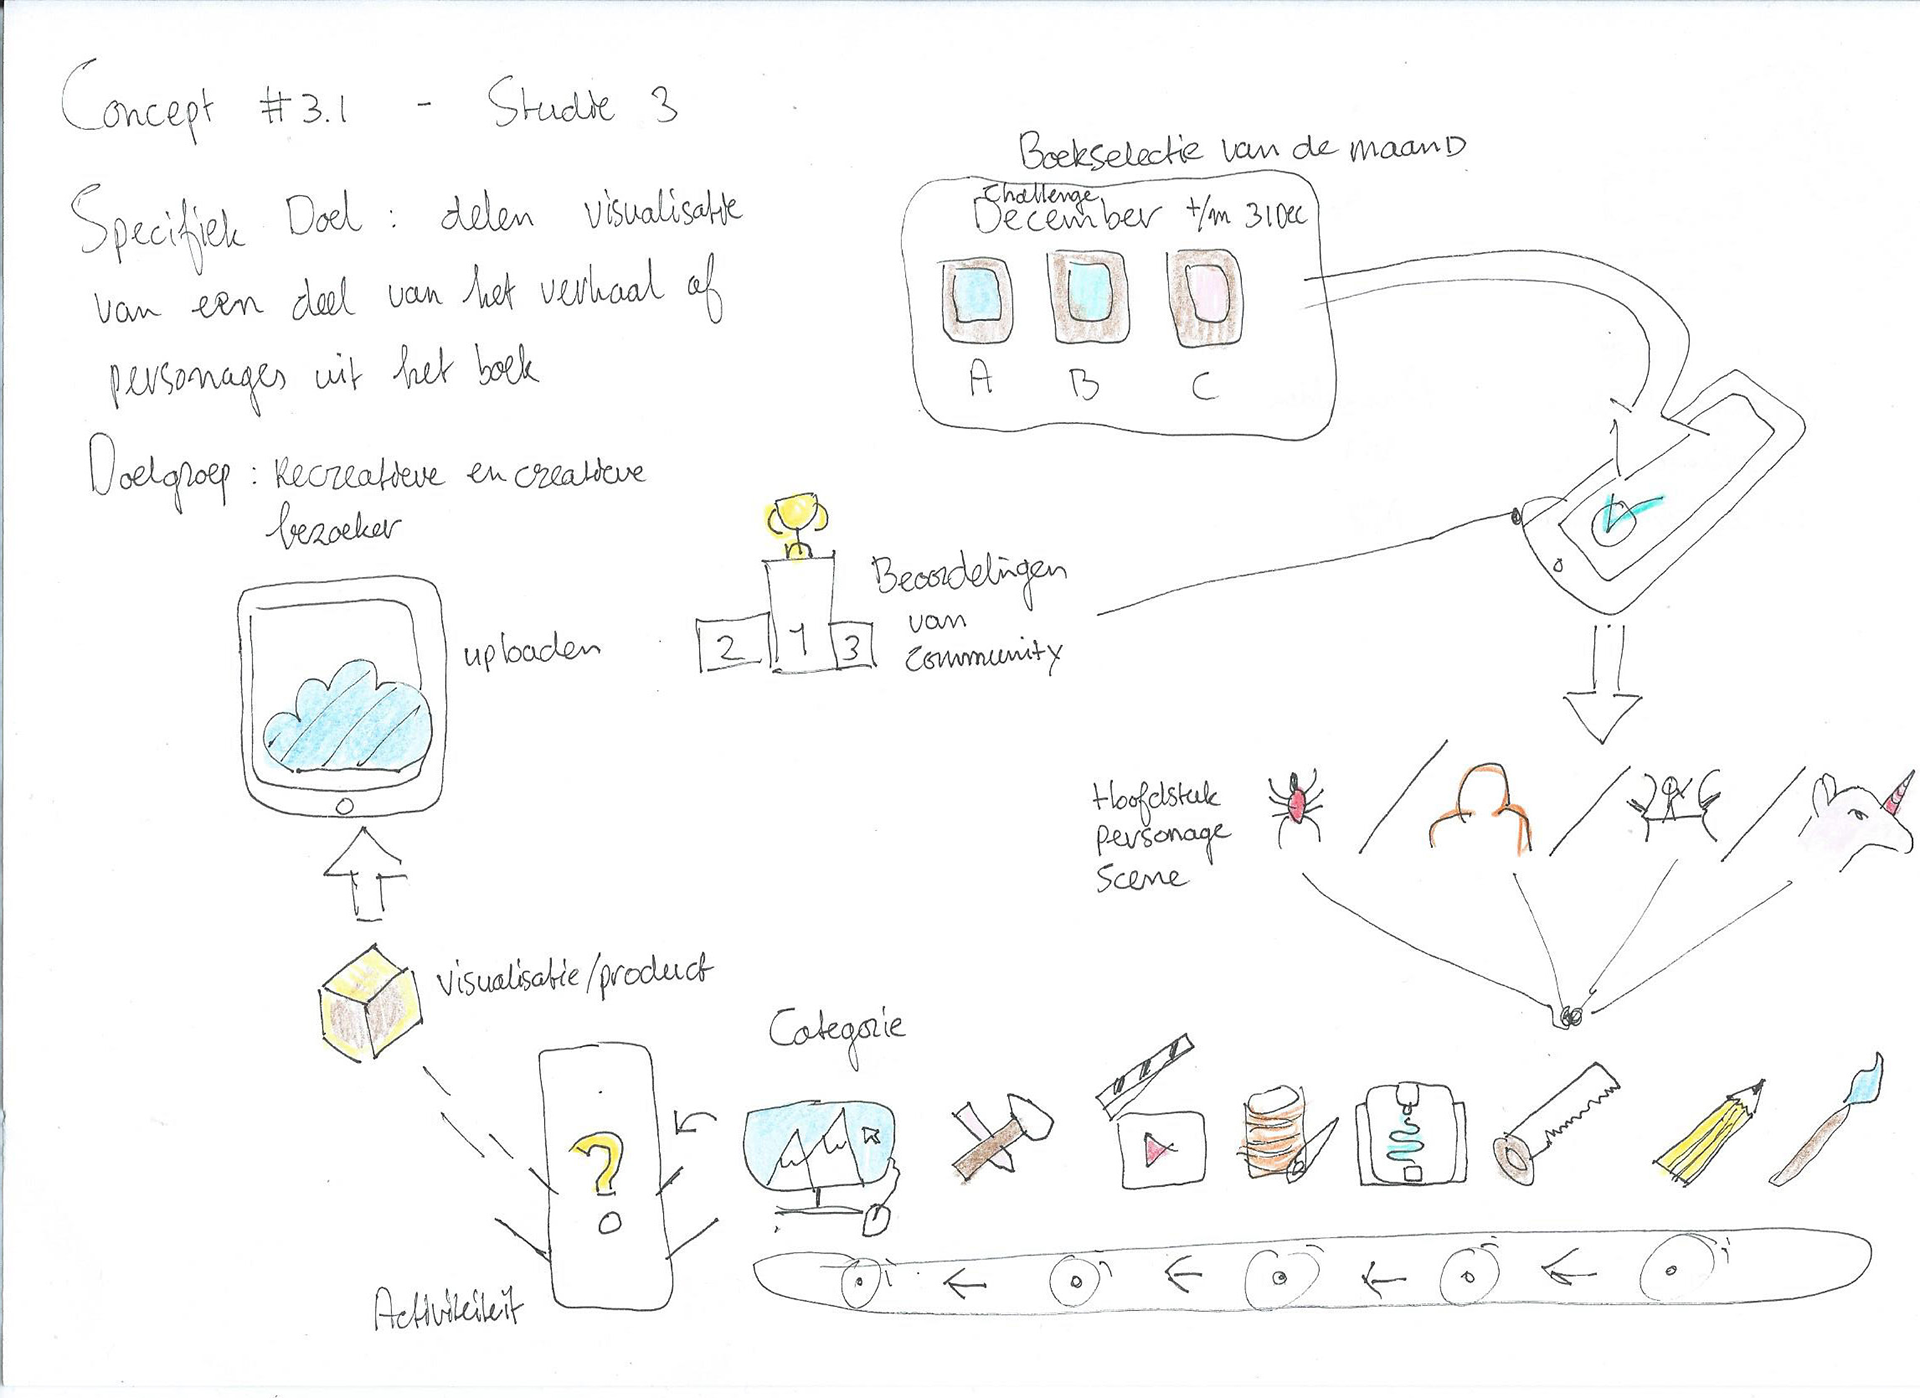 Concept #3.1 - Studie 3
Specifiek Doel : delen visualisatie
van een deel van het verhaal of
personages uit het boek
Doelgroep : Recreatieve en creatieve
bezoeker
Boekselectie van de maand
Challenge
December t/m 31 Dec
A B C
uploaden
2 1 3
Beoordelingen
van
community
Hoofdstuk
personage
Scene
visualisatie/product
Categorie
?
Activiteiteit